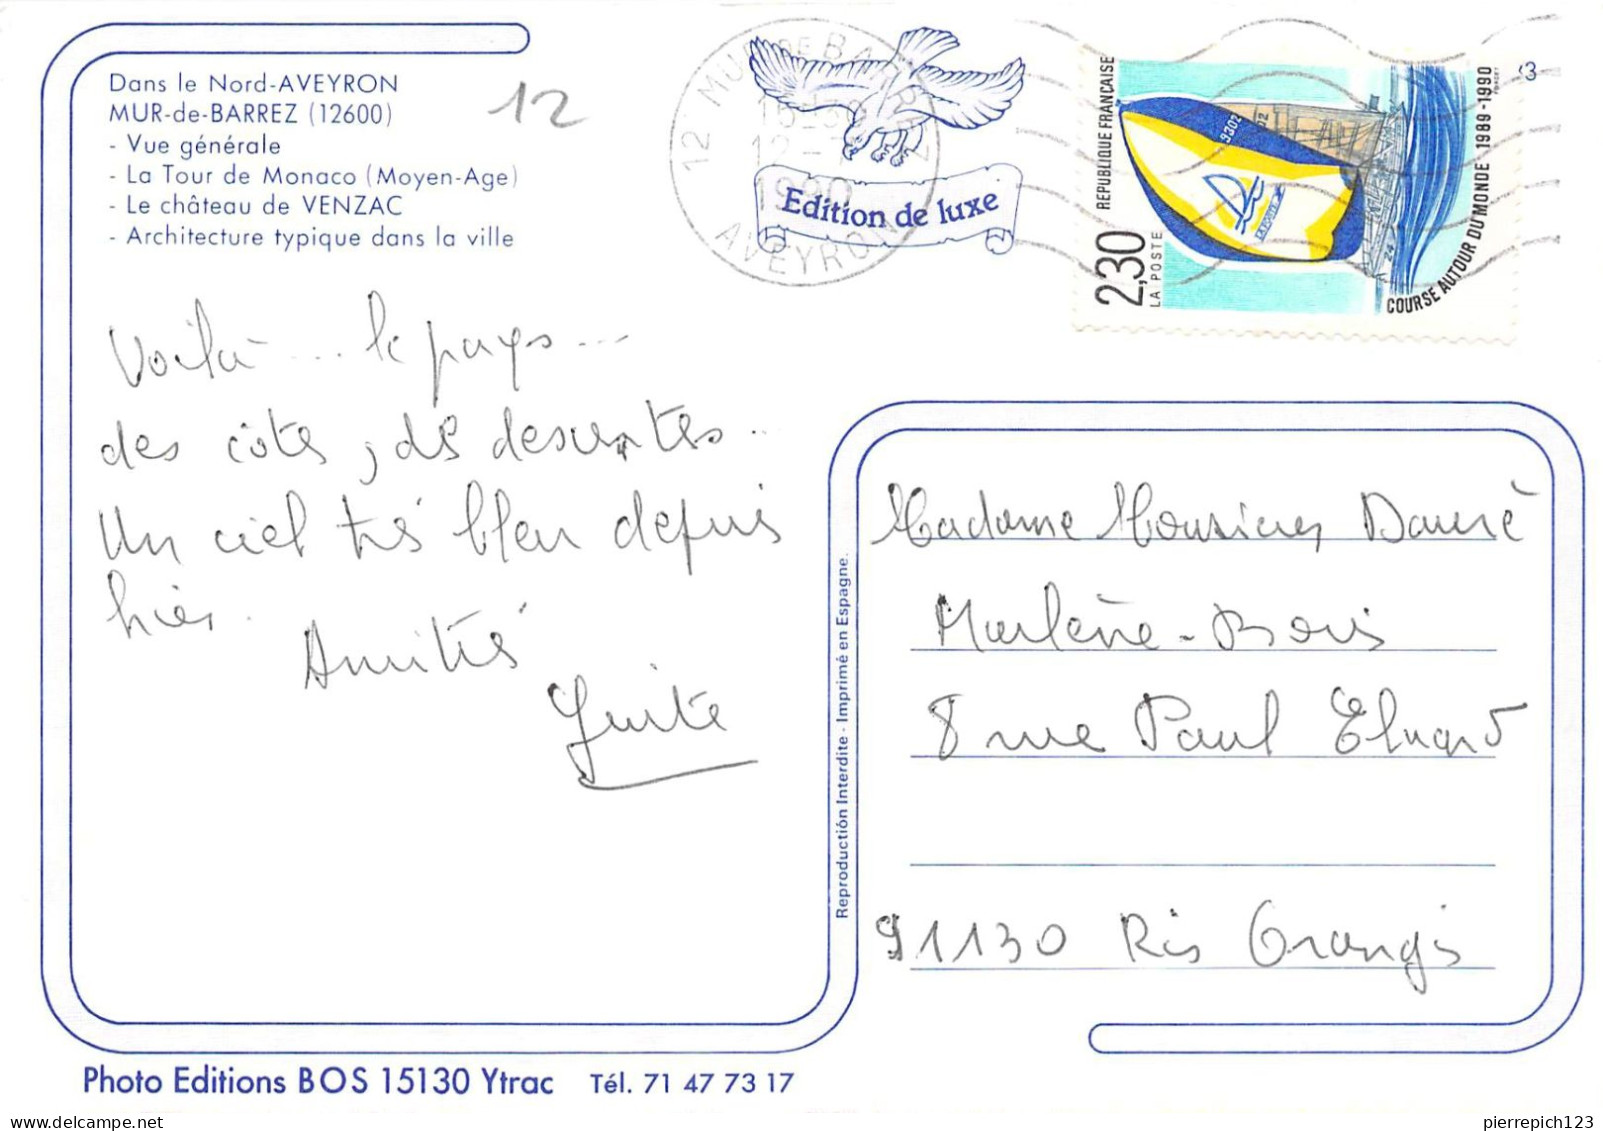 Dans le Nord-AVEYRON
MUR-de-BARREZ (12600)
- Vue générale
- La Tour de Monaco (Moyen-Age)
- Le château de VENZAC
- Architecture typique dans la ville
12
12 MUR DE BARREZ
1990
AVEYRON
Edition de luxe
REPUBLIQUE FRANÇAISE
2,30
LA POSTE
9302
COURSE AUTOUR DU MONDE 1989-1990
Voilà ... le pays ...
des côtes, des descentes ..
Un ciel très bleu depuis
hier.
Amitiés
Reproductión Interdite - Imprimé en Espagne.
Madame Monsieur Dauré
Marlène - Boris
8 rue Paul Eluard
91130 Ris Orangis
Photo Editions BOS 15130 Ytrac Tél. 71 47 73 17
pierrepich123